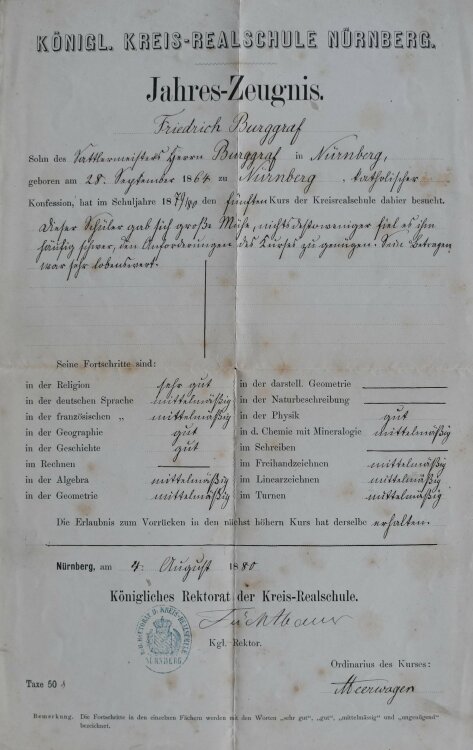 KÖNIGL. KREIS-REALSCHULE NÜRNBERG.
Jahres-Zeugnis.
Friedrich Burggraf
Sohn des Sattlermeisters Herrn Burggraf in Nürnberg,
geboren am 28. September 1864 zu Nürnberg, katholischer
Konfession, hat im Schuljahre 1879/80 den fünften Kurs der Kreisrealschule dahier besucht.
Dieser Schüler gab sich große Mühe, nichtsdestoweniger fiel es ihm
häufig schwer, den Anforderungen des Kurses zu genügen. Sein Betragen
war sehr lobenswert.
Seine Fortschritte sind:
in der Religion sehr gut in der darstell. Geometrie
in der deutschen Sprache mittelmäßig in der Naturbeschreibung
in der französischen „ mittelmäßig in der Physik gut
in der Geographie gut in d. Chemie mit Mineralogie mittelmäßig
in der Geschichte gut im Schreiben
im Rechnen im Freihandzeichnen mittelmäßig
in der Algebra mittelmäßig im Linearzeichnen mittelmäßig
in der Geometrie mittelmäßig im Turnen mittelmäßig
Die Erlaubnis zum Vorrücken in den nächst höhern Kurs hat derselbe erhalten.
Nürnberg, am 4. August 1880
Königliches Rektorat der Kreis-Realschule.
Kgl. Rektor.
NÜRNBERG
Ordinarius des Kurses:
Meerwagen
Taxe 50 ₰
Bemerkung. Die Fortschritte in den einzelnen Fächern werden mit den Worten „sehr gut", „gut", „mittelmässig" und „ungenügend"
bezeichnet.